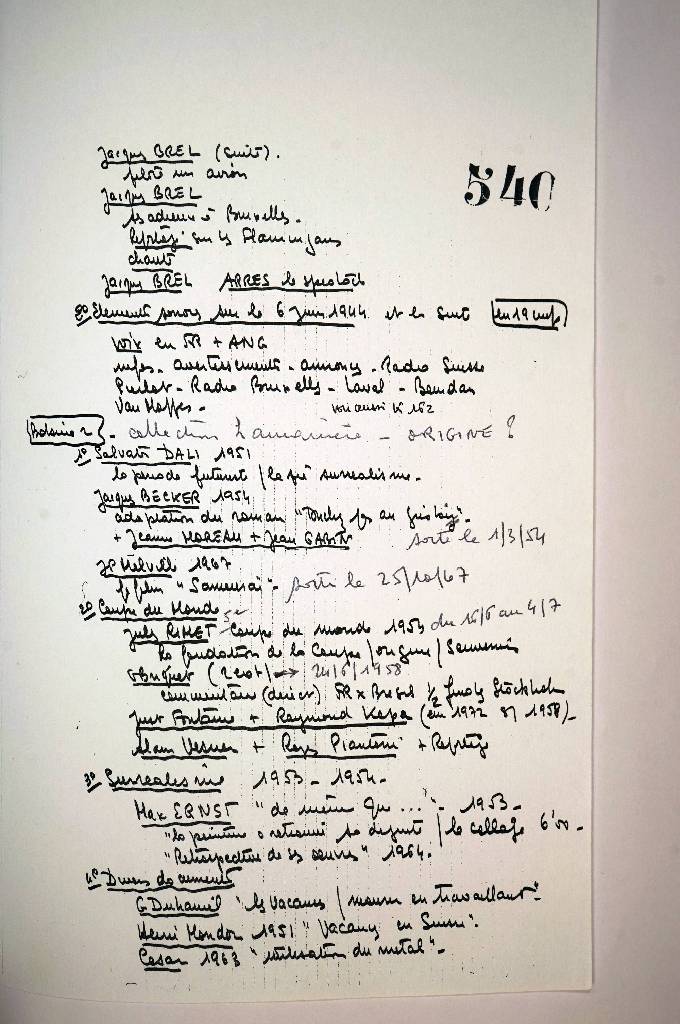 540
Jacques BREL (suite).
pilote un avion
Jacques BREL
ses adieux à Bruxelles.
Reportage sur les Flamingans
chante
Jacques BREL APRES le spectacle
2° Elements sonores sur le 6 juin 1944 et la suite en 19 cm/s
voix en FR + ANG
infos. avertissements - annonces - Radio Suisse
Radio Bruxelles - Laval -
voir aussi K 152
Bobine 2 - collection - ORIGINE ?
1° Salvator DALI 1951
la periode futuriste / la fin surrealisme.
Jacques BECKER 1954
adaptation du roman "Touchez pas au grisbi".
+ Jeanne MOREAU + Jean GABIN sortie le 1/3/54
JP Melville 1967
le film "Samourai" - sorti le 25/10/67
2° Coupe du Monde
Jules RIMET Coupe du monde 1953 du 16/6 au 4/7
La fondation de la Coupe / origine / Souvenirs
(2 rot) → 24/6/1958
commentaire (direct) FR x Bresil 1/2 finale Stockholm
Just Fontaine + Raymond Kopa (en 1972 8/ 1958) -
+ Roger Piantoni + Reportage
3° Surrealisme 1953 - 1954 -
Max ERNST "de même que ..." - 1953 -
"la peinture a retrouvé sa dignité / le collage 6'00 -
"Retrospective de ses oeuvres" 1964.
4° Divers documents
G Duhamel "les vacances / mourir en travaillant"-
Henri Mondor 1951 "Vacances en Suisse".
Cesar 1963 "utilisation du metal" -